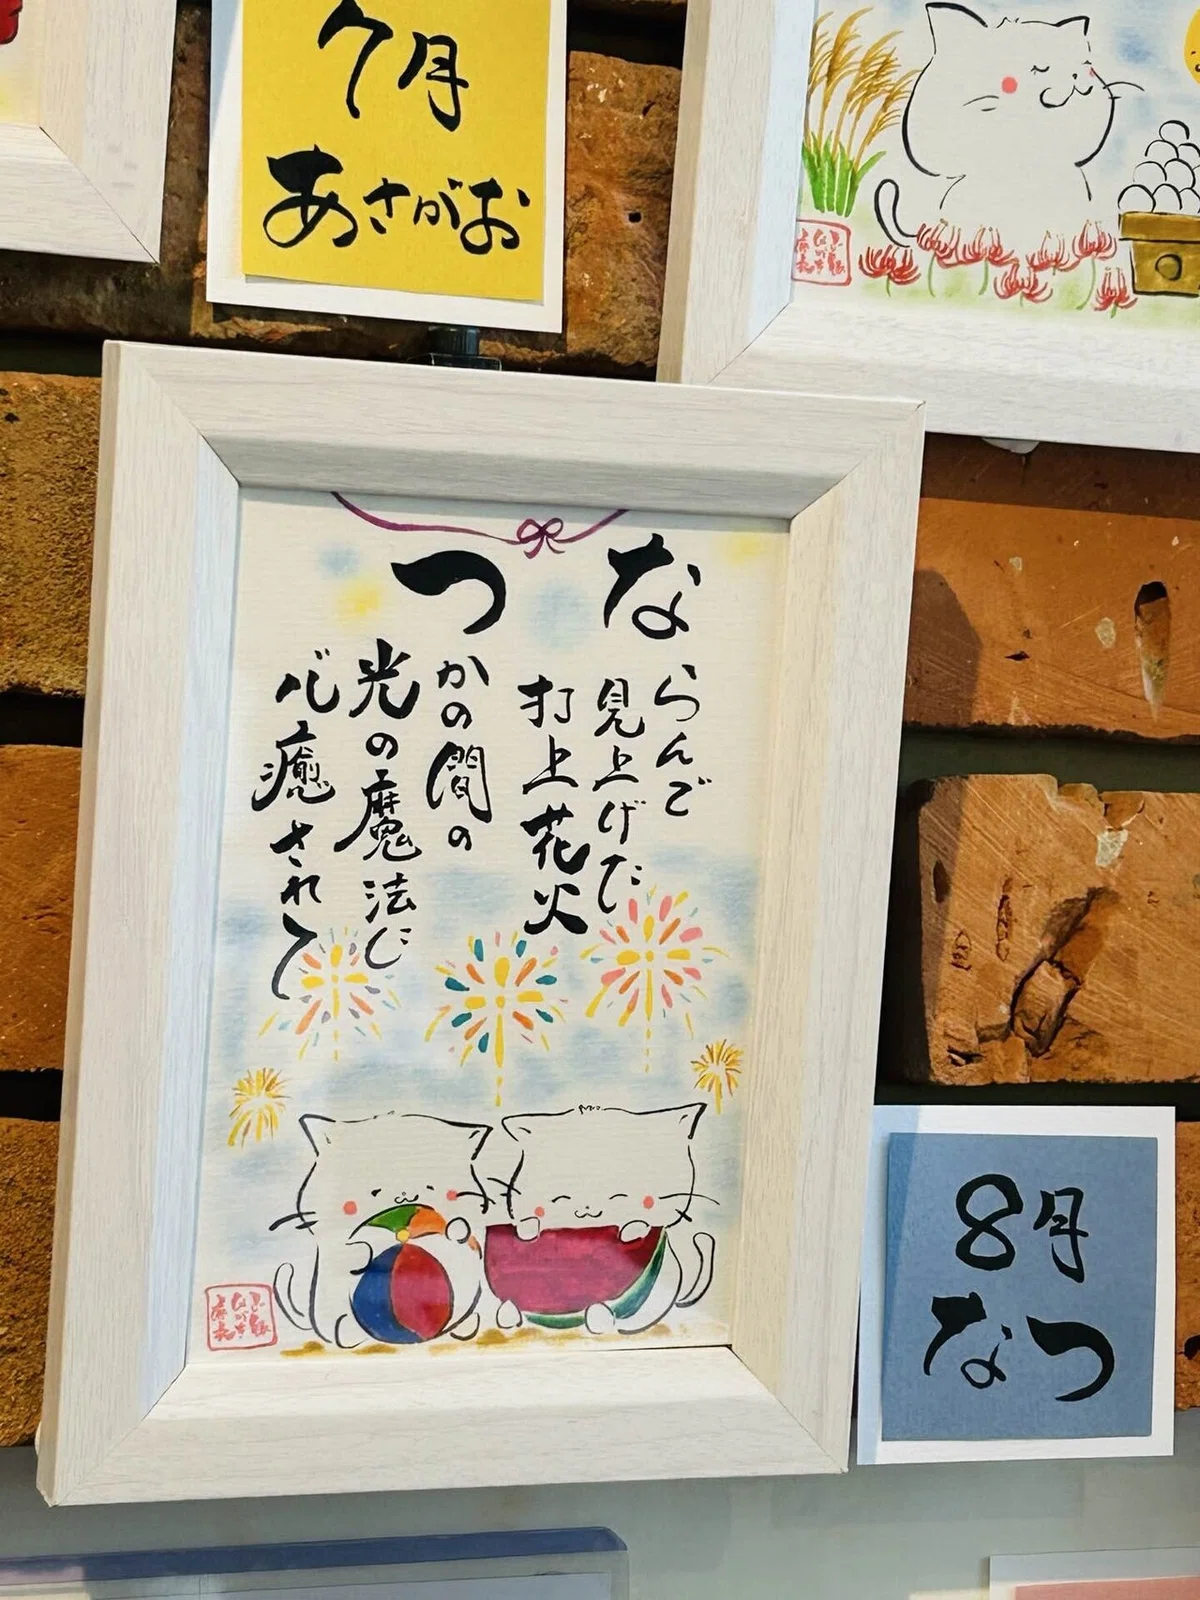 7月
あさがお
な
らんで
見上げた
打上花火
つ
かの間の
光の魔法に
心癒されて
8月
なつ